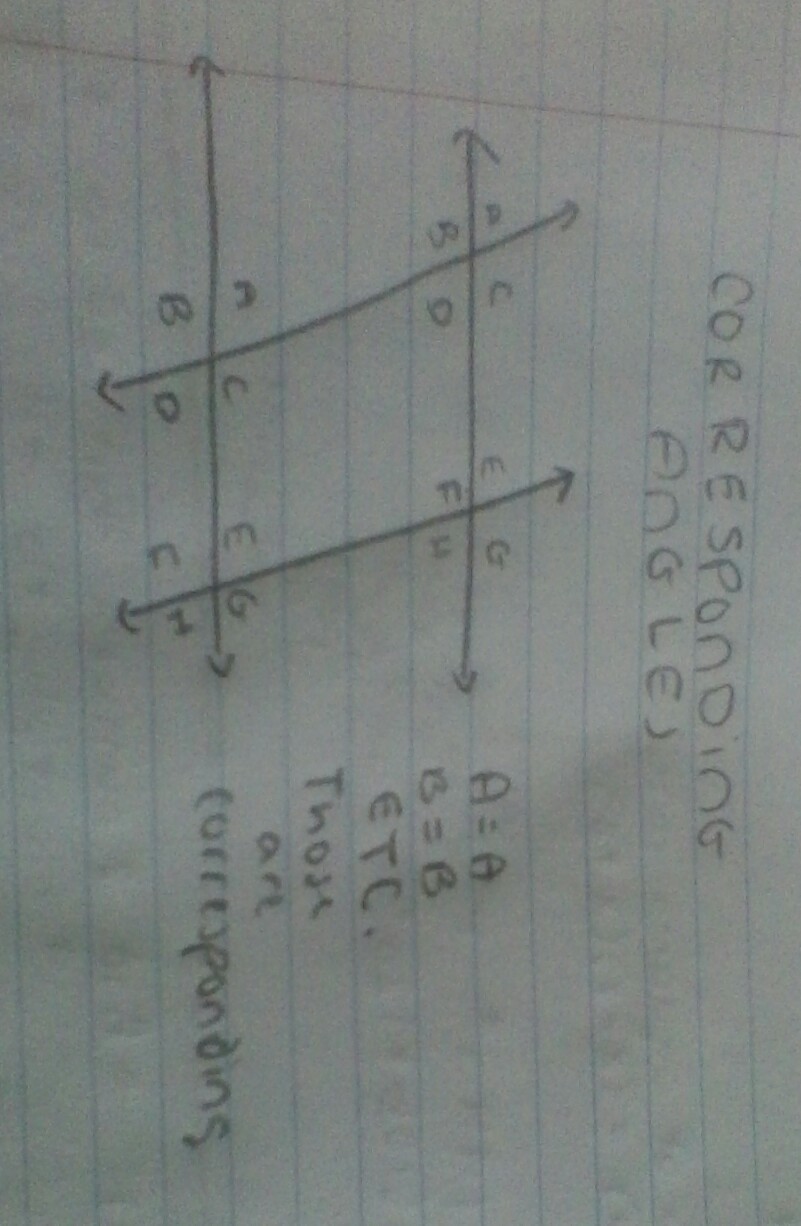 CORRESPonDinG
AnGLES
A C E G
B D F H
A C E G
B D F H
A = A
B = B
ETC.
Those
are
corresponding